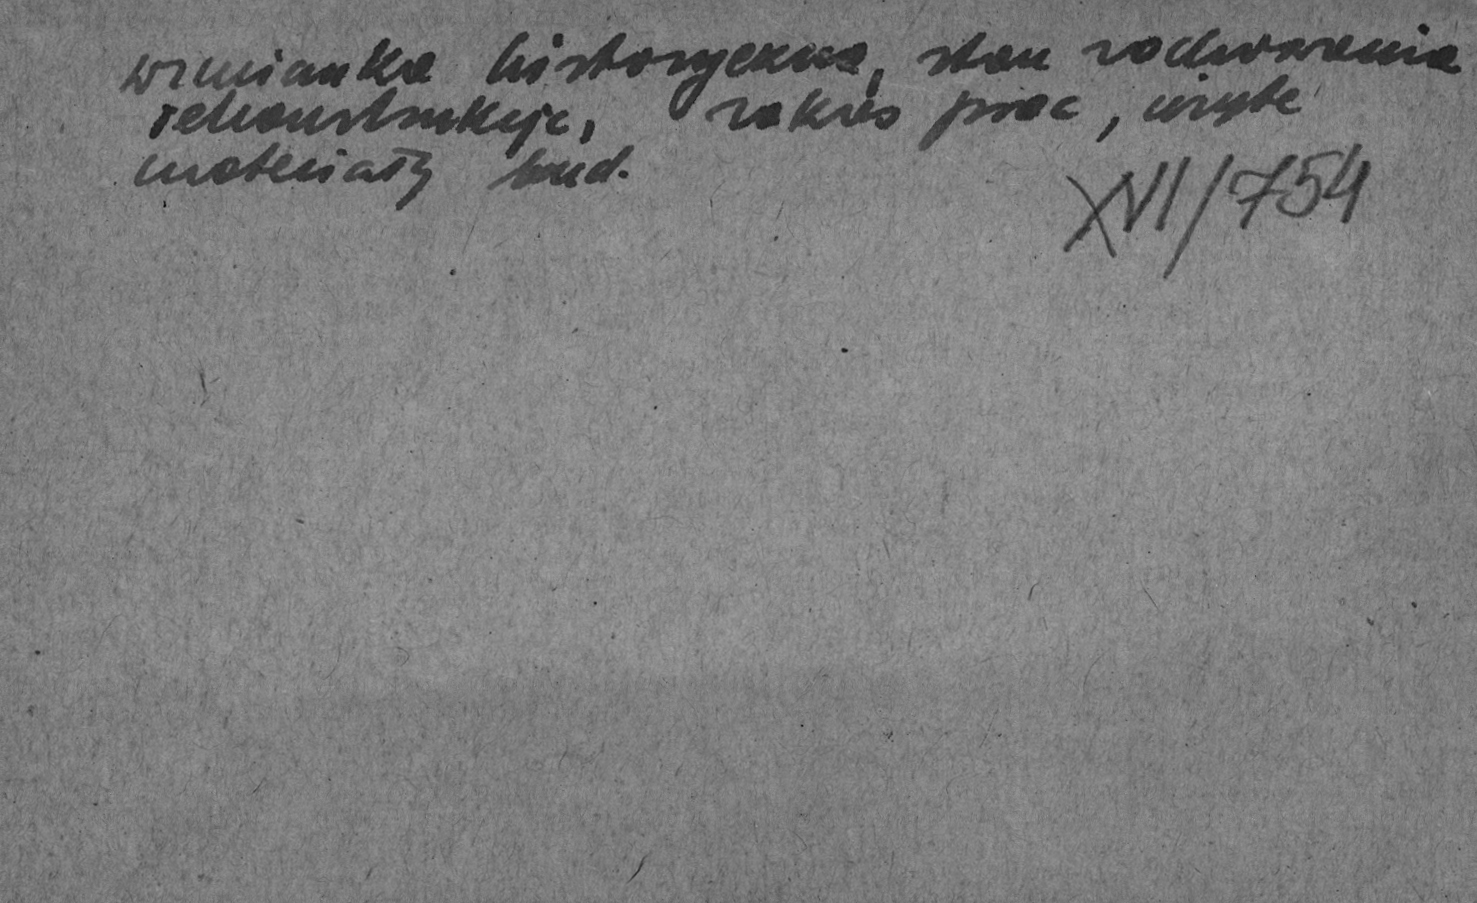 wzmianka historyczna, stan zachowania
rekonstrukcje, zakres prac, użyte
materiały bud.
XVI/754